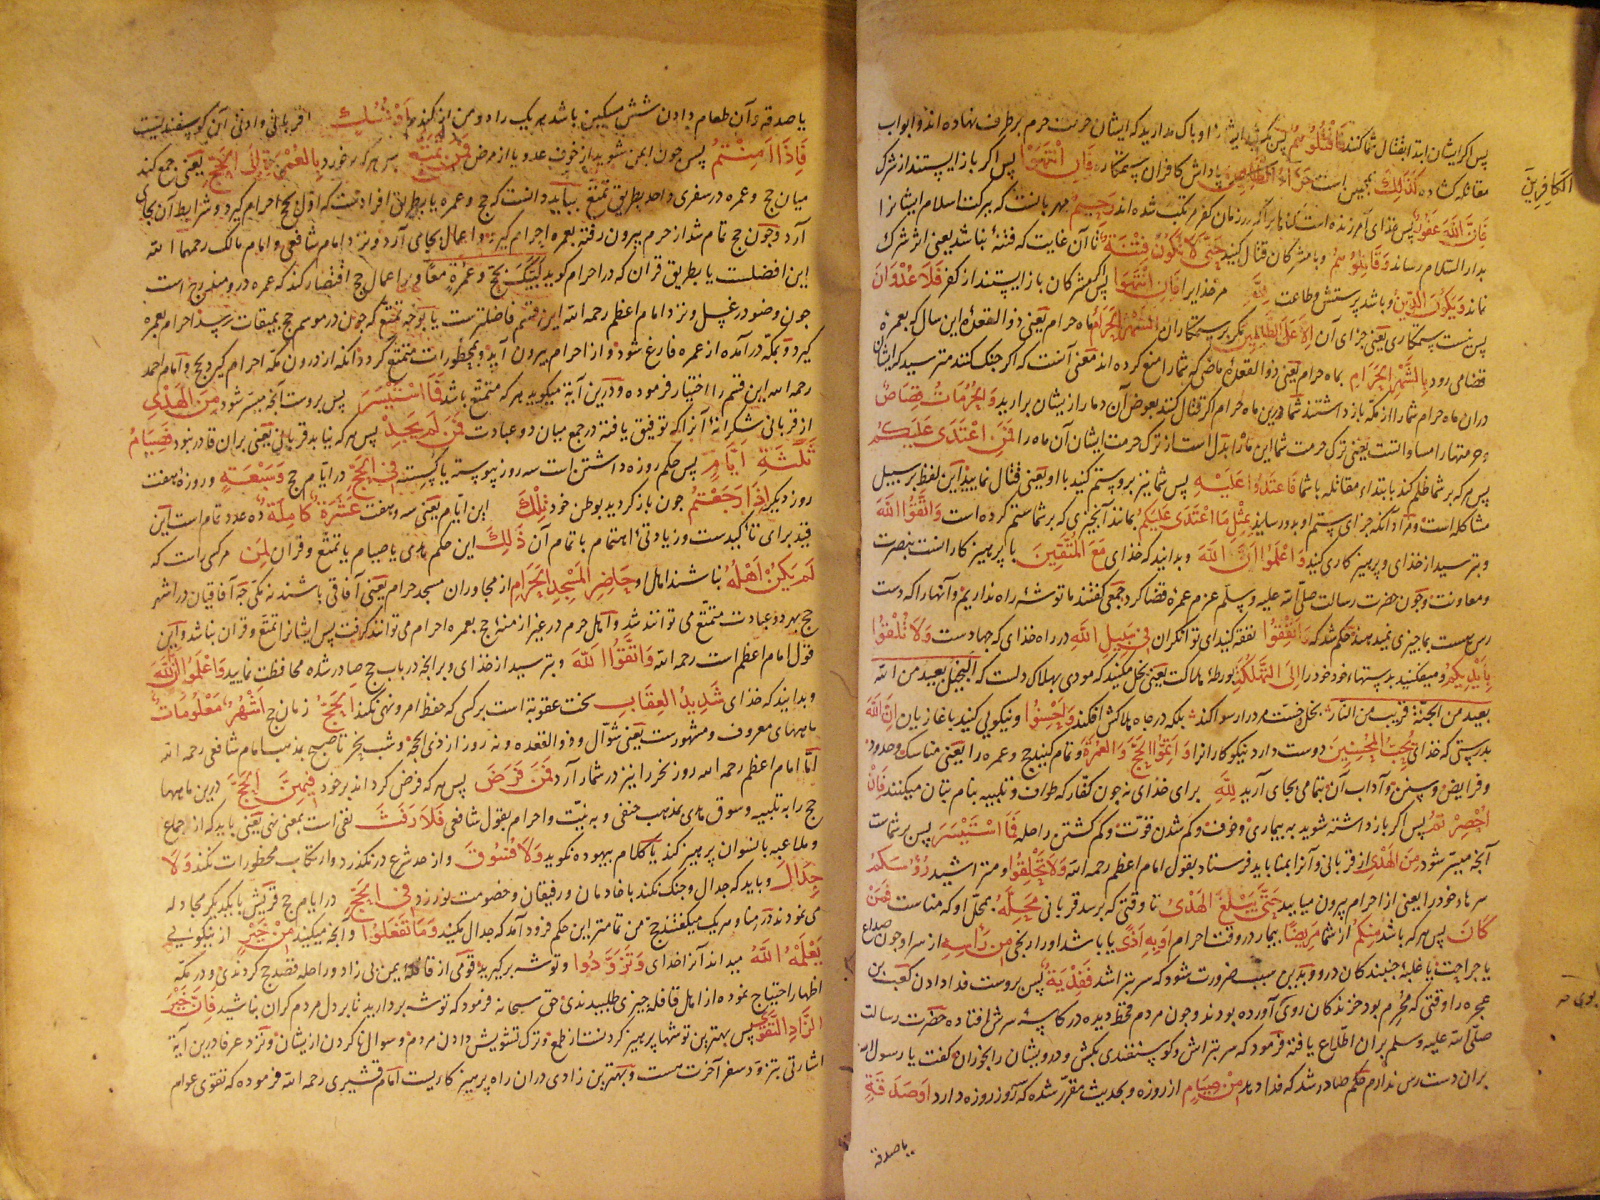 پس اگر ایشان ابتدا بقتال شما کنند فَاقْتُلُوهُمْ پس بکشید ایشانرا و باک مدارید که ایشان حرمت حرم برطرف نهاده اند و ابواب
مقاتله کشاده كَذٰلِكَ همچنین است جَزَاءُ الْكَافِرِينَ پاداش کافران ستمکاره فَاِنِ انْتَهَوْا پس اگر باز ایستند از شرک
الْكَافِرِينَ
فَاِنَّ اللّٰهَ غَفُورٌ پس خدای آمرزنده است گناهانرا که در زمان کفر مرتکب شده اند رَحِيمٌ مهربانست که ببرکت اسلام ایشانرا
بدار السلام رساند وَقَاتِلُوهُمْ و با مشرکان قتال کنید حَتّٰى لَا تَكُونَ فِتْنَةٌ تا آن غایت که فتنه نباشد یعنی اثر شرک
نماند وَيَكُونَ الدِّينُ و باشد پرستش و طاعت لِلّٰهِ مر خدایرا فَاِنِ انْتَهَوْا پس اگر مشرکان باز ایستند از کفر فَلَا عُدْوَانَ
پس نیست ستمکاری یعنی جزای آن اِلَّا عَلَى الظَّالِمِينَ مگر بر ستمکاران الشَّهْرُ الْحَرَامُ ماه حرام یعنی ذو القعده این سال که بعمره
قضا می رود بِالشَّهْرِ الْحَرَامِ بماه حرام یعنی ذو القعده ماضی که شما را منع کرده اند معنی آنست که اگر جنک کنند مترسید که ایشان
دران ماه حرام شما را از مکه باز داشتند شما درین ماه حرام اگر قتال کنند بعوض آن دمار از یشان برارید وَالْحُرُمَاتُ قِصَاصٌ
و حرمتها را مساواتست یعنی ترک حرمت شما این ماه را بدل است از ترک حرمت ایشان آن ماه را فَمَنِ اعْتَدَى عَلَيْكُمْ
پس هر که بر شما ظلم کند بابتداء مقاتله با شما فَاعْتَدُوا عَلَيْهِ پس شما نیز برو ستم کنید با او یعنی قتال نمایید این لفظ بر سبیل
مشاکله است و مراد آنکه جزای ستم او بدو رسانید بِمِثْلِ مَا اعْتَدَى عَلَيْكُمْ بمانند آنچیزی که بر شما ستم کرده است وَاتَّقُوا اللّٰهَ
و بترسید از خدای و پرهیزکاری کنید وَاعْلَمُوا اَنَّ اللّٰهَ و بدانید که خدای مَعَ الْمُتَّقِينَ با پرهیزکارانست بنصرت
و معاونت و چون حضرت رسالت صلی الله علیه و سلم عزم عمره قضا کرد جمعی گفتند ما توشه راه نداریم و آنها را که دست
رس هست بما چیزی نمیدهند حکم شد که وَاَنْفِقُوا نفقه کنید ای توانگران فِي سَبِيلِ اللّٰهِ در راه خدای که جهادست وَلَا تُلْقُوا
بِاَيْدِيكُمْ و میفکنید بدستهای خود خود را اِلَى التَّهْلُكَةِ بورطه هلاکت یعنی بخل مکنید که مودی بهلاک دلست که البخیل بعید من الله
بعید من الجنة قریب من النار بلکه در چاه هلاکش افکند وَاَحْسِنُوا و نیکویی کنید با غازیان اِنَّ اللّٰهَ
بدرستی که خدای يُحِبُّ الْمُحْسِنِينَ دوست دارد نیکوکارانرا وَاَتِمُّوا الْحَجَّ وَالْعُمْرَةَ و تمام کنید حج و عمره را یعنی مناسک و حدود
و فرایض و سنن و آداب آن بتمامی بجای آرید لِلّٰهِ برای خدای نه چون کفار که طواف و تلبیه بنام بتان میکنند فَاِنْ
اُحْصِرْتُمْ پس اگر باز داشته شوید به بیماری و خوف و کم شدن قوت و کم گشتن راحله فَمَا اسْتَيْسَرَ پس بر شماست
آنچه میسر شود مِنَ الْهَدْيِ از قربانی و آنرا بمنا باید فرستاد بقول امام اعظم رحمه الله وَلَا تَحْلِقُوا و متراشید رُؤُسَكُمْ
سرهاء خود را یعنی از احرام بیرون میایید حَتّٰى يَبْلُغَ الْهَدْيُ تا وقتی که برسد قربانی مَحِلَّهُ بمحل او که مناست فَمَنْ
كَانَ پس هر که باشد مِنْكُمْ از شما مَرِيضًا بیمار در وقت احرام اَوْ بِهِ اَذًى یا باشد او را رنجی مِنْ رَاْسِهِ از سر او چون صداع
یا جراحت یا غلبه جنبندگان درو و بدین سبب ضرورت شود که سر بتراشد فَفِدْيَةٌ پس بروست فدا دادن کعب بن
عجره را وقتی که محرم بود خزندگان روی آورده بودند و چون مردم قحط دیده در کاسه سرش افتاده حضرت رسالت
صلی الله علیه و سلم بران اطلاع یافته فرمود که سر بتراش و گوسفندی بکش و بدرویشان رابخوران گفت یا رسول الله
بران دست رس ندارم حکم صادر شد که فدا دهد مِنْ صِيَامٍ از روزه و بحدیث مقرر شده که سه روز روزه دارد اَوْ صَدَقَةٍ
یا صدقة
یا صدقه و آن طعام دادن شش مسکین باشد هر یک را دو من از گندم اَوْ نُسُكٍ یا قربانی و ادنی آن گوسفندیست
فَاِذَا اَمِنْتُمْ پس چون ایمن شوید از خوف عدو یا از مرض فَمَنْ تَمَتَّعَ پس هر که برخورد بِالْعُمْرَةِ اِلَى الْحَجِّ یعنی جمع کند
میان حج و عمره در سفری واحد بطریق تمتع بباید دانست که حج و عمره یا بطریق افرادست که اول بحج احرام گیرد و شرایط آن بجای
آرد و چون حج تمام شد از حرم بیرون رفته بعمره احرام گیرد و اعمال بجای آرد و نزد امام شافعی و امام مالک رحمهما الله
این افضلست یا بطریق قران که در احرام گوید لبیک بحج و عمرة معا و بر اعمال حج اقتصار کند که عمره درو مندرج است
چون وضو در غسل و نزد امام اعظم رحمه الله این قسم فاضلترست یا بوجه تمتع که چون در موسم حج بمیقات رسید احرام بعمره
گیرد و بمکه درآمده از عمره فارغ شود و از احرام بیرون آید و بمحظورات متمتع گردد آنگه از درون مکه احرام گیرد بحج و امام احمد
رحمه الله این قسم را اختیار فرموده و درین آیة میگوید هر که متمتع باشد فَمَا اسْتَيْسَرَ پس بروست آنچه میسر شود مِنَ الْهَدْيِ
از قربانی شکرانه آنرا که توفیق یافته در جمع میان دو عبادت فَمَنْ لَمْ يَجِدْ پس هر که نیابد قربانی یعنی بران قادر نبود فَصِيَامُ
ثَلٰثَةِ اَيَّامٍ پس حکم روزه داشتن است سه روز پیوسته یا گسسته فِي الْحَجِّ در ایام حج وَسَبْعَةٍ و روزه هفت
روز دیگر اِذَا رَجَعْتُمْ چون باز گردید بوطن خود تِلْكَ این ایام یعنی سه و هفت عَشَرَةٌ كَامِلَةٌ ده عدد تمام است این
قید برای تاکیدست و زیادتی اهتمام باتمام آن ذٰلِكَ این حکم هدی یا صیام یا تمتع و قران لِمَنْ مر کسی راست که
لَمْ يَكُنْ اَهْلُهُ نباشند اهل او حَاضِرِي الْمَسْجِدِ الْحَرَامِ از مجاوران مسجد حرام یعنی آفاقی باشند نه مکی چه آفاقیان در اشهر
حج بهر دو عبادت متمتع می توانند شد و اهل حرم در غیر ازمنه حج بعمره احرام می توانند گرفت پس ایشانرا تمتع و قران نباشد و این
قول امام اعظم است رحمه الله وَاتَّقُوا اللّٰهَ و بترسید از خدای و برانچه در باب حج صادر شده محافظت نمایید وَاعْلَمُوا اَنَّ اللّٰهَ
و بدانید که خدای شَدِيدُ الْعِقَابِ سخت عقوبة است بر کسی که حفظ امر و نهی نکند اَلْحَجُّ زمان حج اَشْهُرٌ مَعْلُومَاتٌ
ماههای معروف و مشهورست یعنی شوال و ذو القعده و نه روز از ذی الحجه و شب نحر تا صبح بمذهب امام شافعی رحمه الله
اما امام اعظم رحمه الله روز نحر را نیز در شمار آرد فَمَنْ فَرَضَ پس هر که فرض گرداند بر خود فِيهِنَّ الْحَجَّ درین ماهها
حج را به تلبیه و سوق هدی بمذهب حنفی و به نیت و احرام بقول شافعی فَلَا رَفَثَ نفی است بمعنی نهی یعنی باید که از جماع
و ملاعبه با نسوان پرهیز کند یا کلام بیهوده نگوید وَلَا فُسُوقَ و از حد شرع در نگذرد و ارتکاب محظورات نکند وَلَا
جِدَالَ و باید که جدال و جنگ نکند با خادمان و رفیقان و خصومت نورزد فِي الْحَجِّ در ایام حج قریش با یکدیگر مجادله
می نمودند در منا و هر یک میگفتند حج من تمامتر این حکم فرود آمد که جدال مکنید وَمَا تَفْعَلُوا و آنچه میکنید مِنْ خَيْرٍ از نیکویی
يَعْلَمْهُ اللّٰهُ میداند آنرا خدای وَتَزَوَّدُوا و توشه برگیرید قومی از قافله یمن بی زاد و راحله قصد حج کردندی و در مکه
اظهار احتیاج نموده از اهل قافله چیزی طلبیدندی حق سبحانه فرمود که توشه بردارید تا بر دل مردم گران نباشید فَاِنَّ خَيْرَ
الزَّادِ التَّقْوٰى پس بهترین توشها پرهیز کردنست از طمع و ترک تشویش دادن مردم و سوال ناکردن از یشان و نزد عرفا درین آیة
اشارتی بتزود سفر آخرت هست و بهترین زادی دران راه پرهیزکاریست امام قشیری رحمه الله فرموده که تقوی عوام